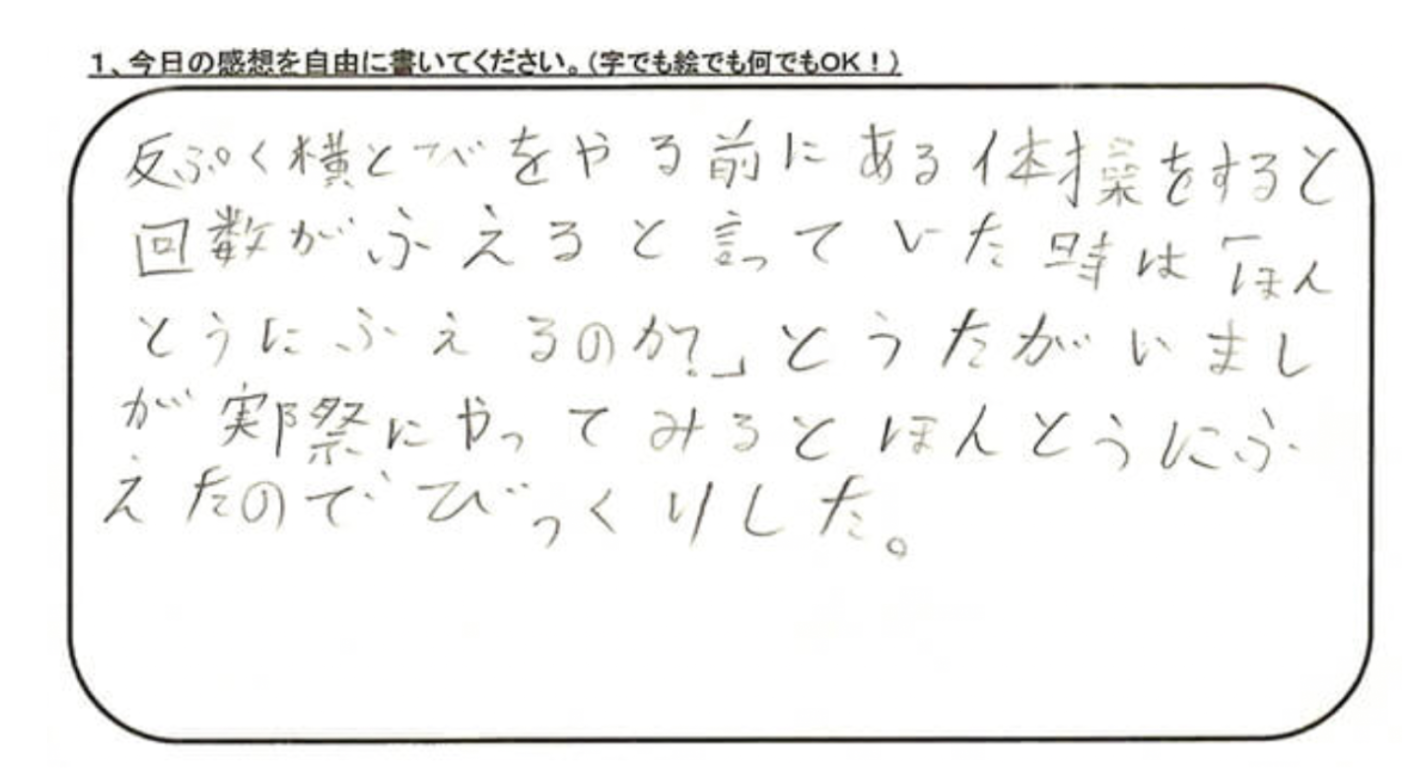 1、今日の感想を自由に書いてください。(字でも絵でも何でもOK！)
反ぷく横とびをやる前にある体操をすると
回数がふえると言っていた時は「ほん
とうにふえるのか?」とうたがいまし
が実際にやってみるとほんとうにふ
えたのでびっくりした。